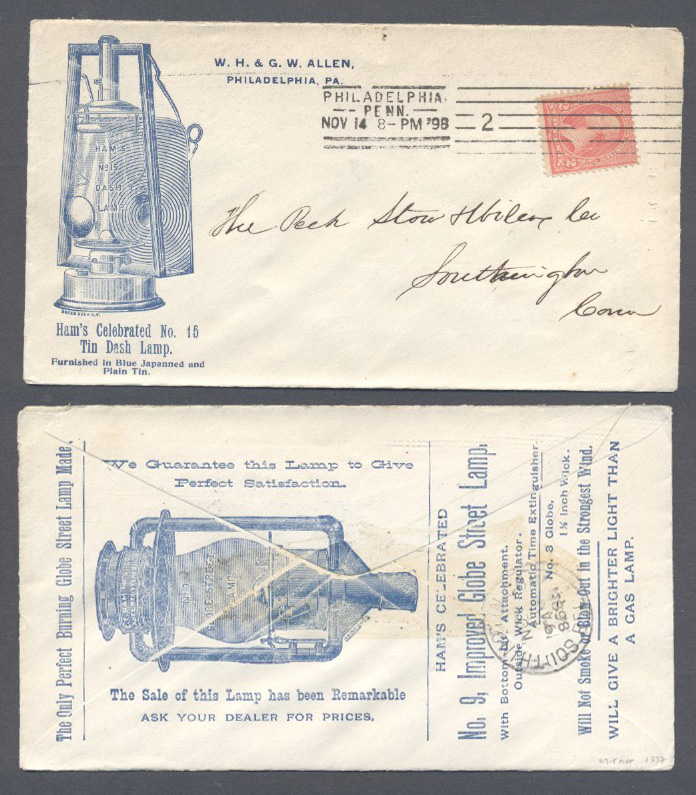 W. H. & G. W. ALLEN,
PHILADELPHIA, PA.
PHILADELPHIA,
PENN.
NOV 14 8-PM '98
2
HAM'S
No 15
DASH
LAMP
The Peck Stow & Wilcox Co
Southington
Conn
Ham's Celebrated No. 15
Tin Dash Lamp.
Furnished in Blue Japanned and
Plain Tin.
The Only Perfect Burning Globe Street Lamp Made.
We Guarantee this Lamp to Give
Perfect Satisfaction.
No 9
GLOBE STREET
LAMP
The Sale of this Lamp has been Remarkable
ASK YOUR DEALER FOR PRICES.
HAM'S CELEBRATED
No. 9, Improved Globe Street Lamp.
With Bottom Attachment.
Outside Wick Regulator.
Automatic Time Extinguisher.
No. 3 Globe,
1½ Inch Wick.
Will Not Smoke or Blow Out in the Strongest Wind.
WILL GIVE A BRIGHTER LIGHT THAN
A GAS LAMP.